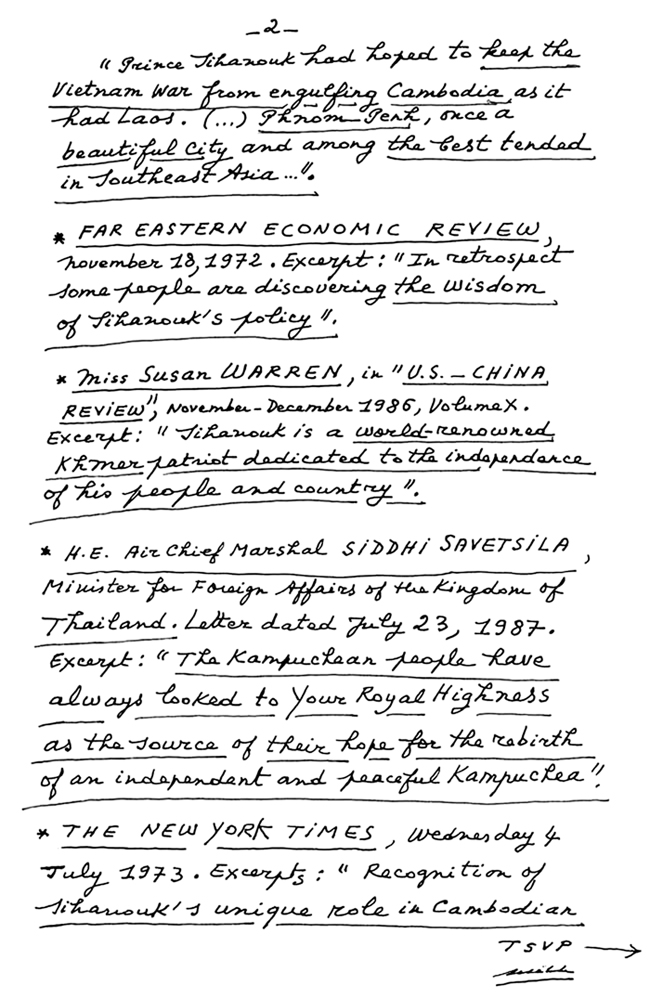 _2_
"Prince Sihanouk had hoped to keep the
Vietnam War from engulfing Cambodia as it
had Laos. (...) Phnom Penh, once a
beautiful city and among the best tended
in Southeast Asia ...".
* FAR EASTERN ECONOMIC REVIEW,
November 18, 1972. Excerpt: "In retrospect
some people are discovering the wisdom
of Sihanouk's policy".
* Miss Susan WARREN, in "U.S. – CHINA
REVIEW", November-December 1986, Volume X.
Excerpt: "Sihanouk is a world-renowned
Khmer patriot dedicated to the independence
of his people and country".
* H.E. Air Chief Marshal SIDDHI SAVETSILA,
Minister for Foreign Affairs of the Kingdom of
Thailand. Letter dated July 23, 1987.
Excerpt: "The Kampuchean people have
always looked to Your Royal Highness
as the source of their hope for the rebirth
of an independent and peaceful Kampuchea".
* THE NEW YORK TIMES, Wednesday 4
July 1973. Excerpts: "Recognition of
Sihanouk's unique role in Cambodian
TSVP →